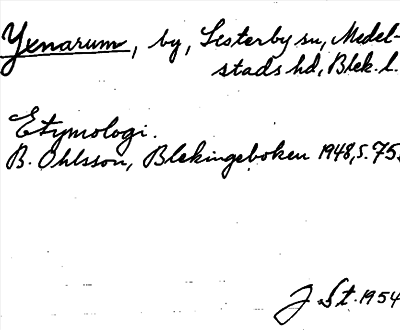 Yxnarum, by, Listerby sn, Medel-
stads hd, Blek. l.
Etymologi.
B. Ohlsson, Blekingeboken 1948, s. 75.
J St. 1954